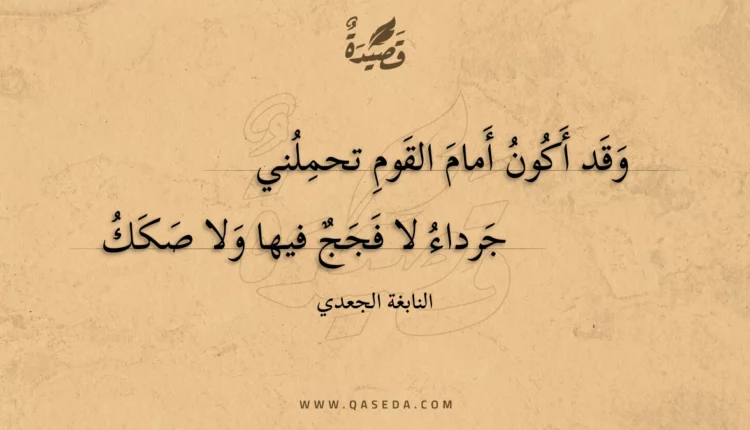 قَصِيدَةٌ
وَقَد أَكُونُ أَمامَ القَومِ تحمِلُني
جَرداءُ لا فَجَجٌ فيها وَلا صَكَكُ
النابغة الجعدي
WWW.QASEDA.COM